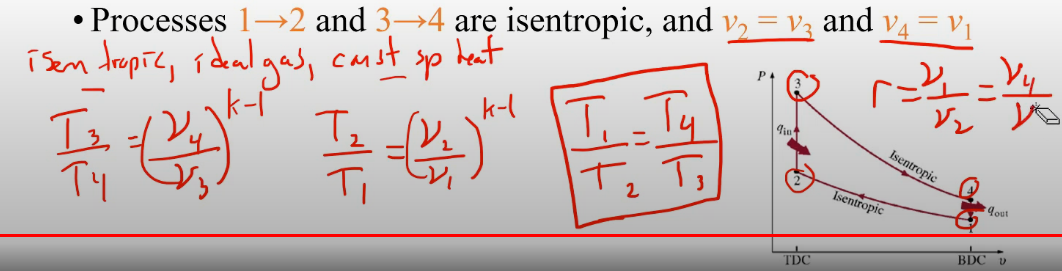 • Processes 1→2 and 3→4 are isentropic, and v₂ = v₃ and v₄ = v₁
isentropic, ideal gas, const sp heat
T₃/T₄ = (v₄/v₃)^k-1
T₂/T₁ = (v₂/v₁)^k-1
T₁/T₂ = T₄/T₃
r = v₁/v₂ = v₄/v
P
3
q_in
2
Isentropic
Isentropic
4
q_out
1
TDC
BDC
v